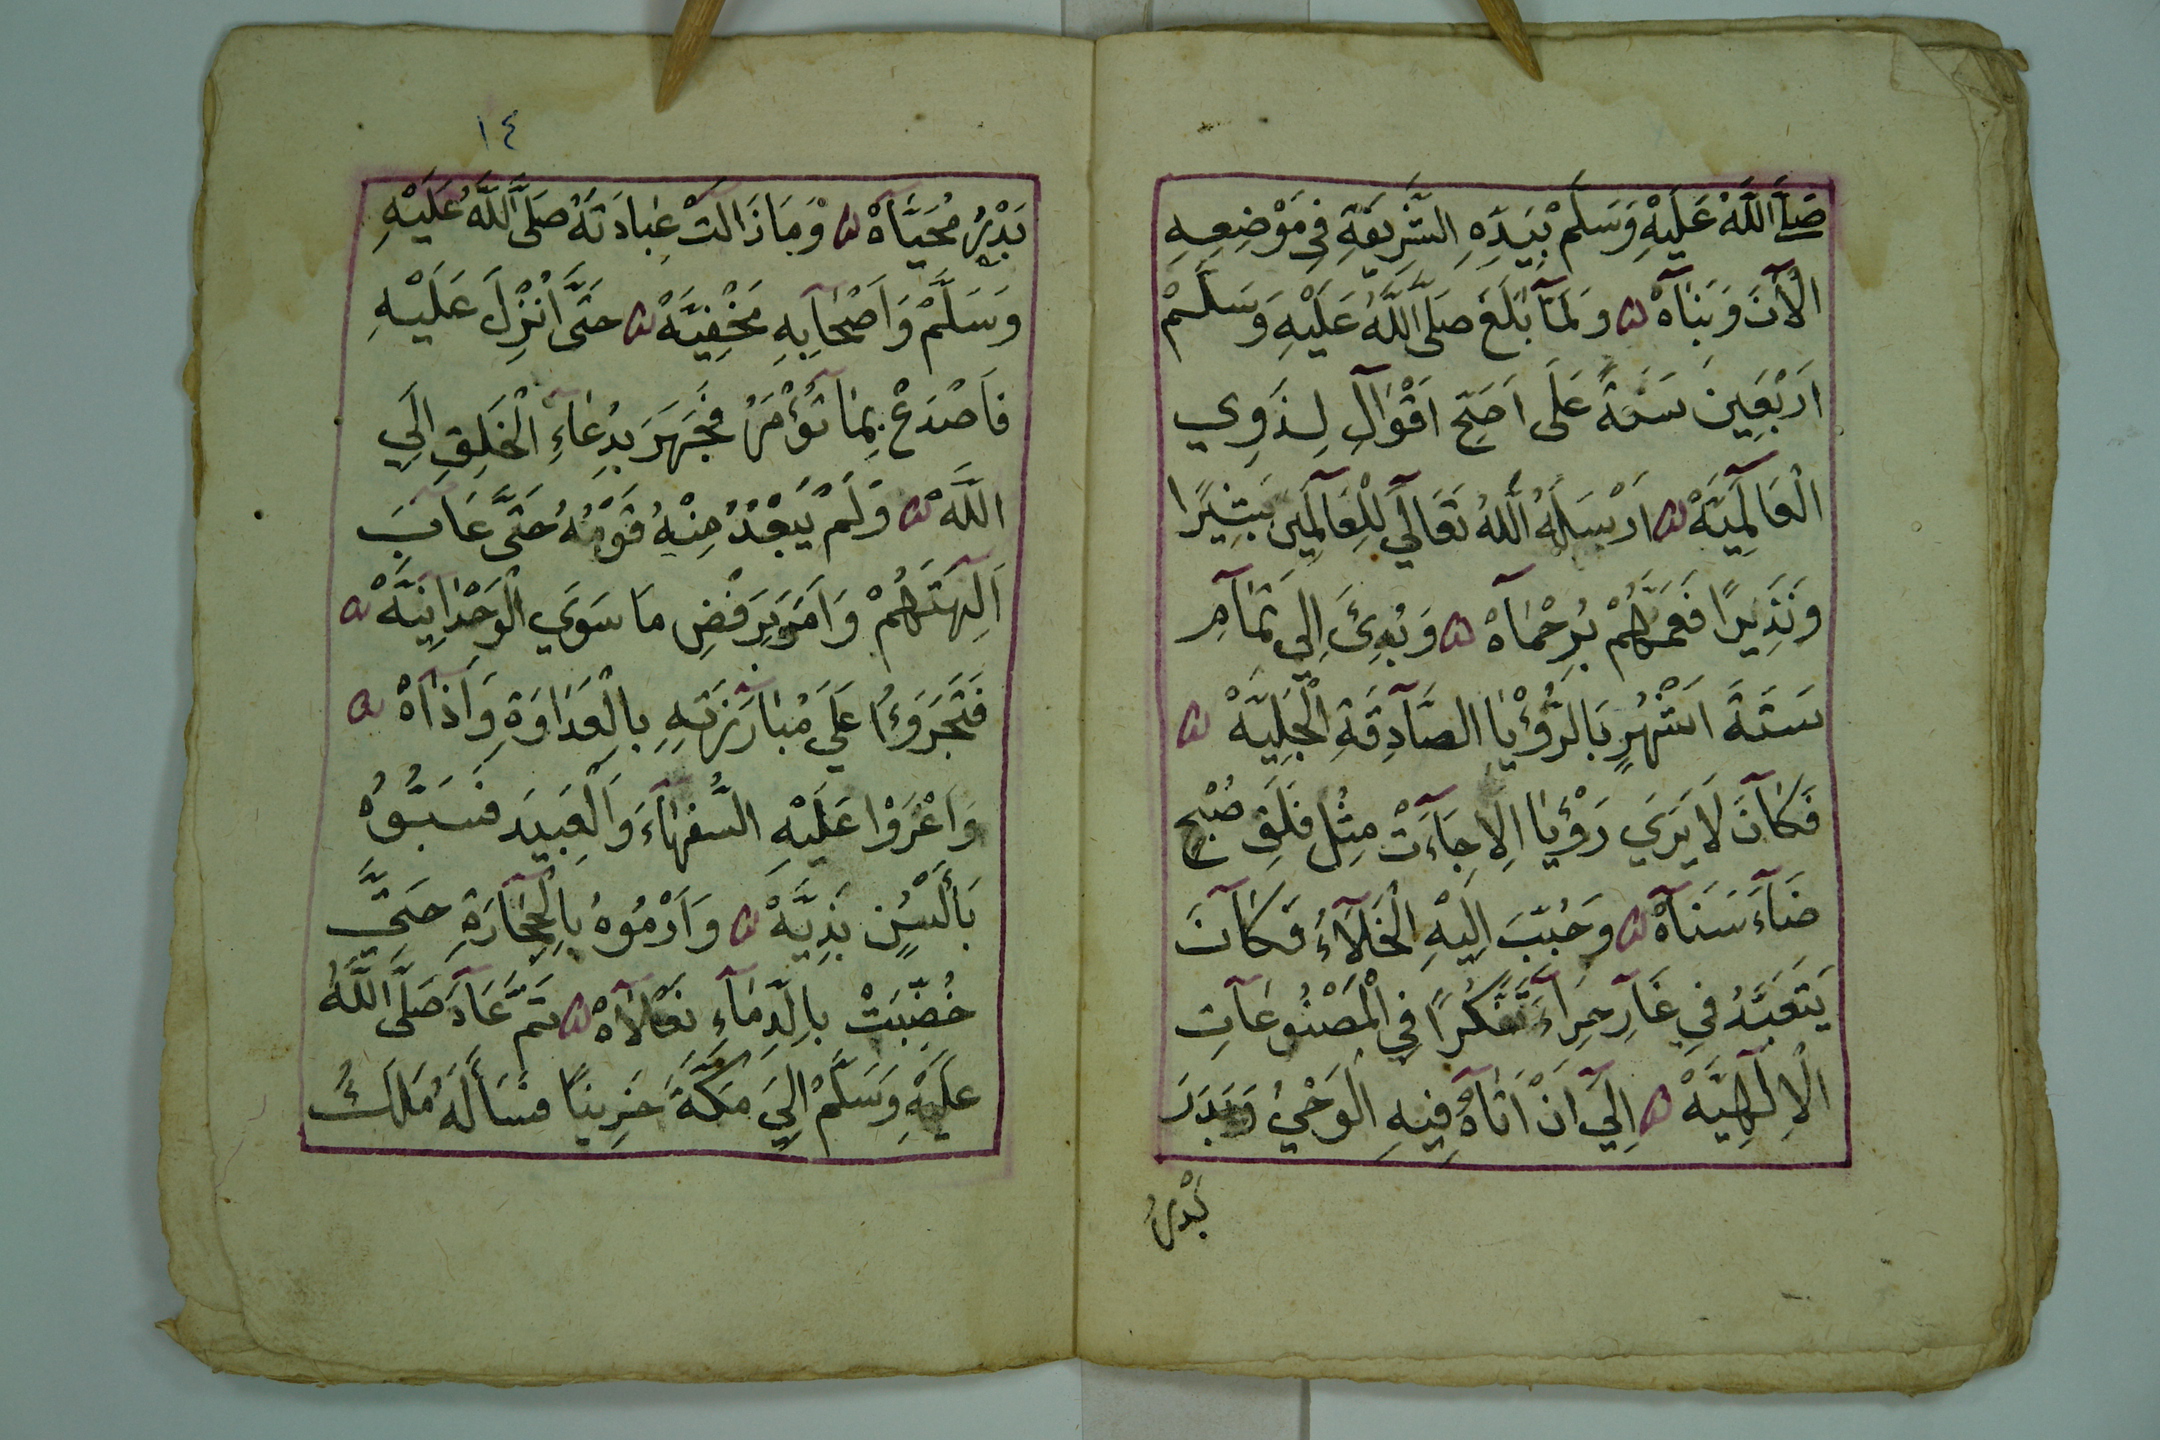 صَلَّى اللَّهُ عَلَيْهِ وَسَلَّمْ بِيَدِهِ الشَّرِيفَةِ فِي مَوْضِعِهِ
الْأَنَ وَبَنَاهْ ۵ وَلَمَّا بَلَغَ صَلَّى اللَّهُ عَلَيْهِ وَسَلَّمْ
اَرْبَعِينَ سَنَةً عَلَى اَصَحِّ اَقْوَالِ لِذَوِي
الْعَالَمِيَّهْ ۵ اَرْسَلَهُ اللَّهُ تَعَالَى لِلْعَالَمِين بَشِيرًا
وَنَذِيرًا فَعَمَّهُمْ بُرحْمَاهْ ۵ وَبُدِئَ اِلَي تَمَامِ
سَتَةَ اَشْهُرٍ بَالرُّؤْيَا الصَّادِقَةِ الْجَلِيَّهْ ۵
فَكَانَ لَا يَرَي رَؤْيَا اِلاجَاءَتْ مِثْلِ فَلَقِ صُبْحٍ
ضَاءَ سَنَاهْ ۵ وَحُبِّبَ اِلَيْهِ الْخَلَاءُ فَكَانَ
يَتَعَبَّدُ فِي غَارِ حِرَاءَ تَفَكُّرًا فِي الْمَصْنُوعَاتِ
الْاِلَهِيَّهْ ۵ اِلَي اَنْ اَتَاهُ فِيهِ الْوَحْيُ وَبَدَرَ
بَدْرُ
١٤
بَدْرُ مُحَيَّاهْ ۵ وَمَازَالَتْ عِبَادَتَهُ صَلَى اللَّهُ عَلَيْهِ
وَسَلَّمْ وَاَصْحَابِهِ مَخْفِيَّهْ ۵ حَتَّى اُنْزِلَ عَلَيْهِ
فَاصْدَعْ بِمَا تُؤْمَرُ فَجَهَرَ بِدُعَاءِ الْخَلِقِ اِلَي
اللَّهْ ۵ وَلَمْ يَبْعُدْ مِنْهُ قَوْمُهُ حَتَّى عَابَ
اَلِهَتَهُمْ وَاَمَرَ بِرَفْضِ مَا سَوَي الْوَحْدَانِيَّهْ ۵
فَتَجَرَوءُا عَلَي مُبَارَزَتِهِ بِالْعَدَاوَةِ وَاَذَاهْ ۵
وَاغْرَوْا عَلَيْهِ السُّفَهَاءَ وَالْعَبِيدَ فَسَبُّوُهْ
بَأَلْسُنٍ بَذِيَّهْ ۵ وَارْمُوهُ بِالْحِجَارَةِ حَتَّي
خُضِّبَتْ بِالدِّمَاءِ نَعْلَاهْ ۵ ثمَّ عَادَ صَلَّى اللَّهُ
عَلَيْهِ وَسَلَّمْ اِلَي مَكَّةَ حَزِينًا فَسَأَلَهُ مَلَكُ